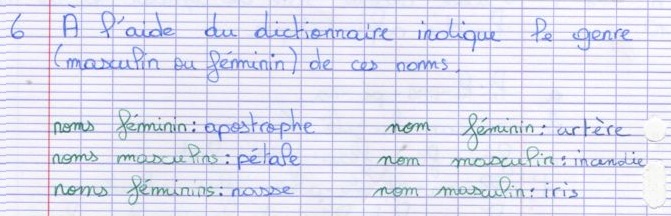 6 À l'aide du dictionnaire indique le genre
(masculin ou féminin) de ces noms.
noms féminin : apostrophe nom féminin : artère
noms masculins : pétale nom masculin : incendie
noms féminins : nasse nom masculin : iris